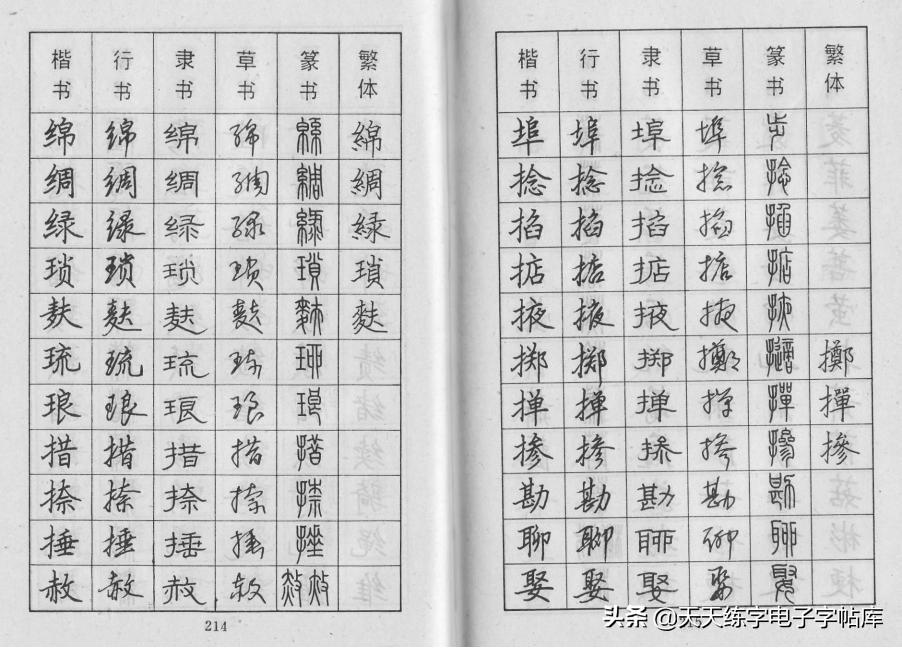 楷书 行书 隶书 草书 篆书 繁体
绵 绵 绵 绵 綿 綿
绸 绸 绸 绸 綢 綢
绿 绿 绿 绿 綠 綠
琐 琐 琐 琐 瑣 瑣
麸 麸 麸 麸 麩 麩
琉 琉 琉 琉
琅 琅 琅 琅 琅
措 措 措 措 措
捺 捺 捺 捺 捺
捶 捶 捶 捶 捶
赦 赦 赦 赦 赦
214
楷书 行书 隶书 草书 篆书 繁体
埠 埠 埠 埠
捻 捻 捻 捻 捻
掐 掐 掐 掐 掐
掂 掂 掂 掂 掂
掖 掖 掖 掖
掷 掷 掷 擲 擲
掸 掸 掸 掸 撣 撣
掺 掺 掺 掺 摻 摻
勘 勘 勘 勘 勘
聊 聊 聊 聊 聊
娶 娶 娶 娶 娶
头条 @天天练字电子字帖库